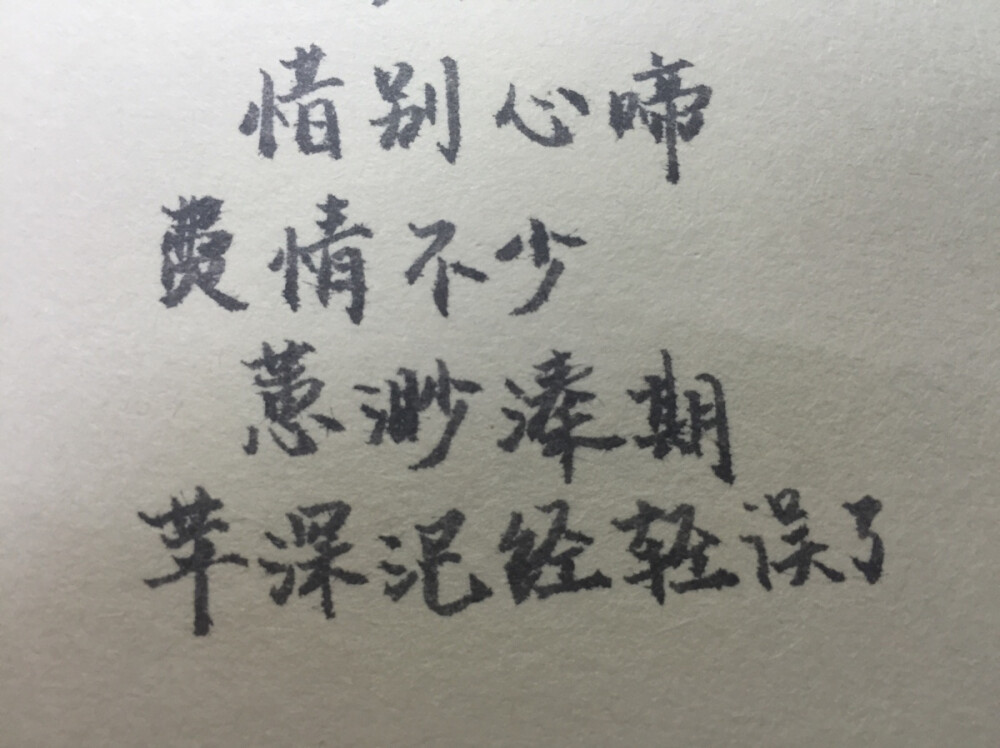 惜别心啼
费情不少
蕙渺溱期
苹深汜经轻误了